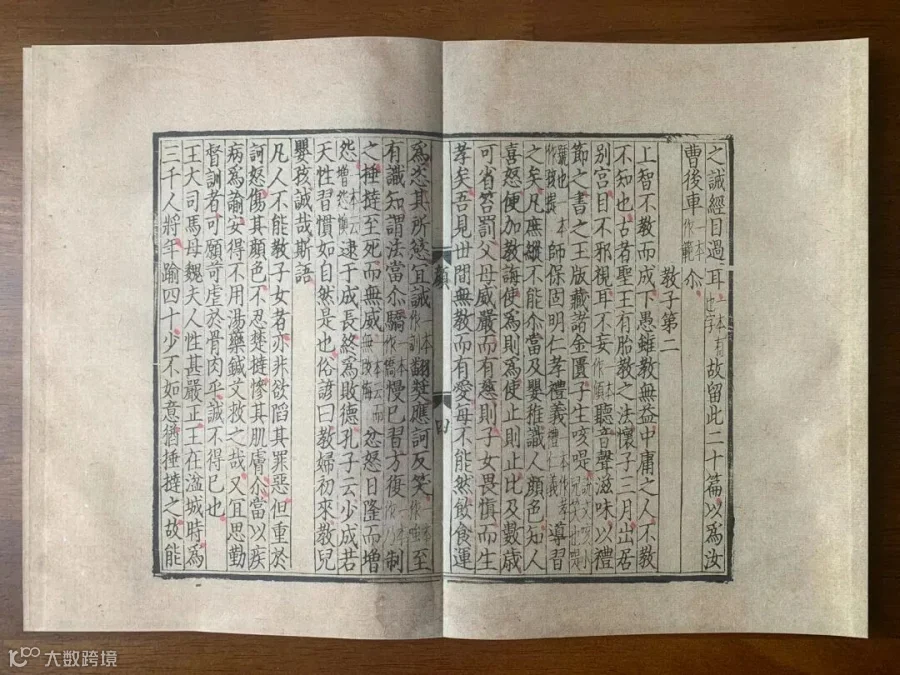 之誡經目過耳一本有也字故留此二十篇以爲汝
曹後車一本作範尒
教子第二
上智不教而成下愚雖教無益中庸之人不教
不知也古者聖王有胎教之法懷子三月出居
別宮目不邪視耳不妄一本作傾聽音聲滋味以禮
節之書之玉版藏諸金匱子生咳㖷
師保固明仁孝禮義一本作孝禮仁義導習
之矣凡庶縱不能尒當及嬰稚識人顔色知人
喜怒便加教誨使爲則爲使止則止比及數歳
可省笞罰父母威嚴而有慈則子女畏慎而生
孝矣吾見世間無教而有愛每不能然飲食運
顔
四
爲恣其所慾宜誡一本作訓翻奬應訶反笑一本作嗤至
有識知謂法當尒驕一本作憍慢已習方復一本作乃制
之捶撻至死而無威一本云而無改悔忿怒日隆而增
怨一本云增怨懼逮于成長終爲敗德孔子云少成若
天性習慣如自然是也俗諺曰教婦初來教兒
嬰孩誠哉斯語
凡人不能教子女者亦非欲䧟其罪惡但重於
訶怒傷其顔色不忍楚撻慘其肌膚尒當以疾
病爲諭安得不用湯藥鍼艾救之哉又宜思勤
督訓者可願苛虐於骨肉乎誠不得已也
王大司馬母魏夫人性甚嚴正王在湓城時爲
三千人將年踰四十少不如意猶捶撻之故能
大数跨境